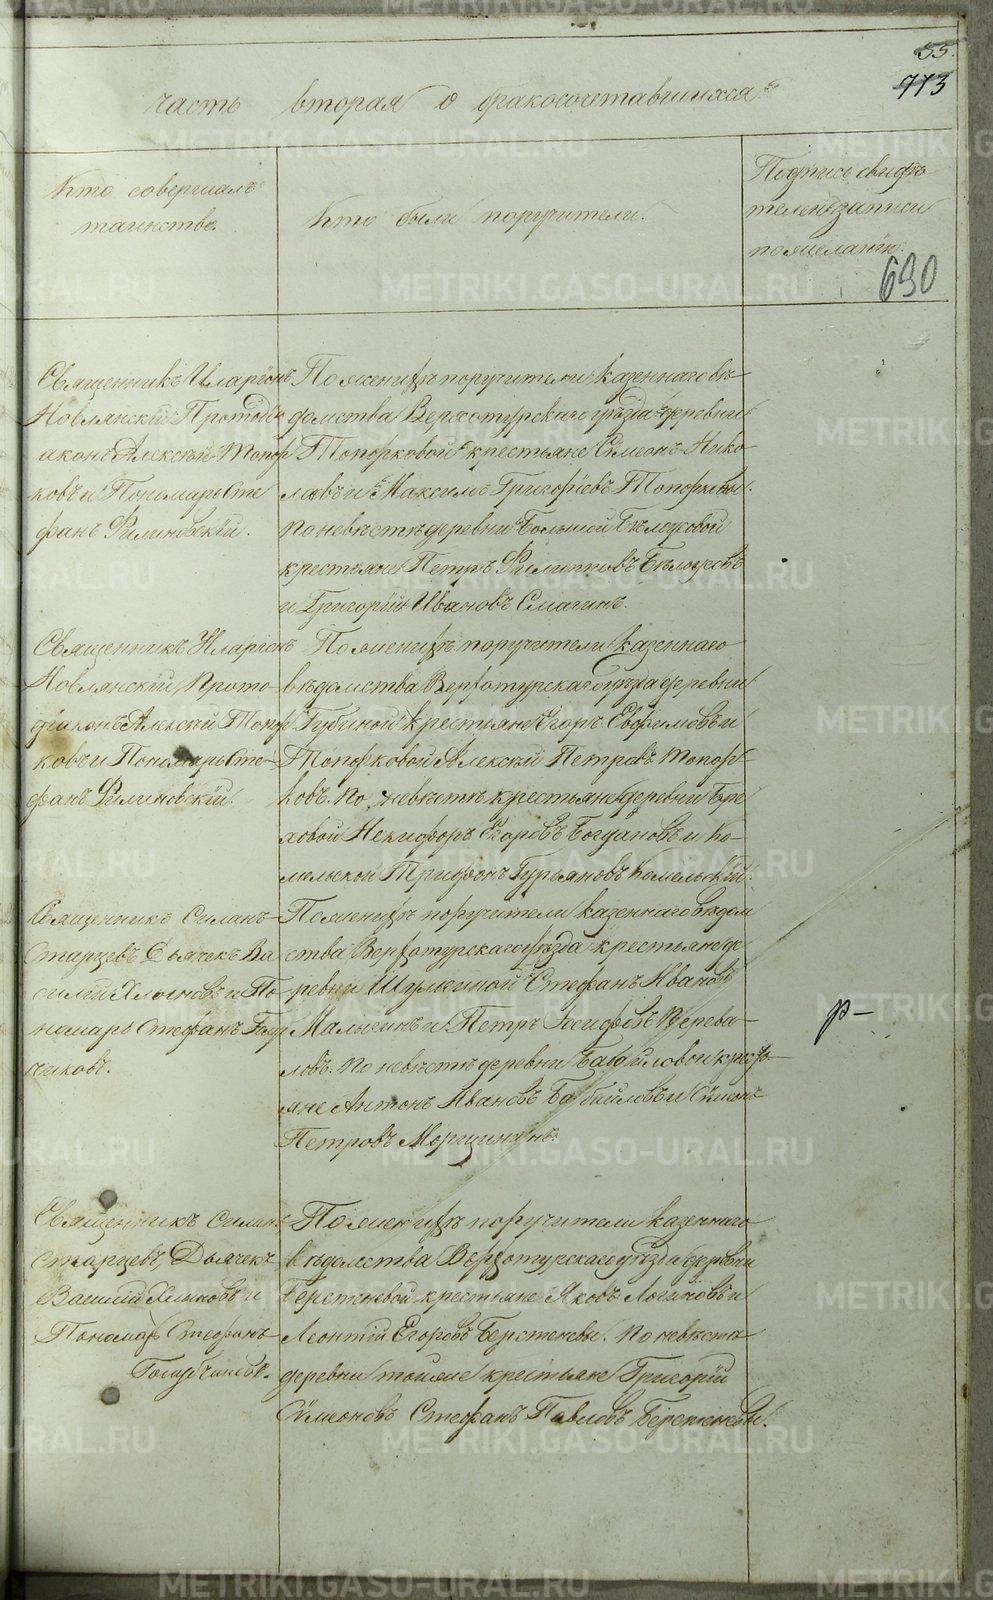 55.
773
часть вторая о бракосочетавшихся
Кто совершалъ
таинство.
Кто были поручители.
Подпись свидѣ
телей записи
по желанію.
690
Священникъ Иларіонъ
Новлянскій Протоді
аконъ Алексѣй Топор
ковъ и Пономарь Сте
фанъ Филиновскій.
По женихѣ поручители казеннаго вѣ
домства Верхотурскаго уѣзда деревни
Топорковой крестьяне Симеонъ Нико
лаевъ и Максимъ Григорьевъ Топорковы.
По невѣстѣ деревни Большой Бѣлоусовой
крестьяне Петръ Филипповъ Бѣлоусовъ
и Григорій Ивановъ Смагинъ.
Священникъ Иларіонъ
Новлянскій, Прото-
діаконъ Алексѣй Топор
ковъ и Пономарь Сте-
фанъ Филиновскій.
По женихѣ поручители казеннаго
вѣдомства Верхотурскаго уѣзда деревни
Губиной крестьяне Егоръ Евфимовъ и
Топорковой Алексѣй Петровъ Топор
ковъ. По невѣстѣ крестьяне деревни Бре
ховой Никифоръ Егоровъ Богдановъ и Ко-
мельской Трифонъ Гурьяновъ Комельскій.
Священникъ Силанъ
Старцевъ Дьячекъ Ва
силій Хлыновъ и По-
номарь Стефанъ Голуб
чиковъ.
По женихѣ поручители казеннаго вѣдом
ства Верхотурскаго уѣзда крестьяне де
ревни Шульгиной Стефанъ Ивановъ
Малыгинъ и Петръ Іосифовъ Перева-
ловъ. По невѣстѣ деревни Бабайловой кресть-
яне Антонъ Ивановъ Бабайловъ и Сѵмеонъ
Петровъ Морщининъ.
р-
Священникъ Силанъ
Старцевъ, Дьячекъ
Василій Хлыновъ и
Пономарь Стефанъ
Голубчиковъ.
По женихѣ поручители казеннаго
вѣдомства Верхотурскаго уѣзда деревни
Берстеневой крестьяне Яковъ Логиновъ и
Леонтій Егоровъ Берстеневы. По невѣстѣ
деревни тойже крестьяне Григорій
Сѵмеоновъ Стефанъ Павловъ Берстеневы.
METRIKI.GASO-URAL.RU